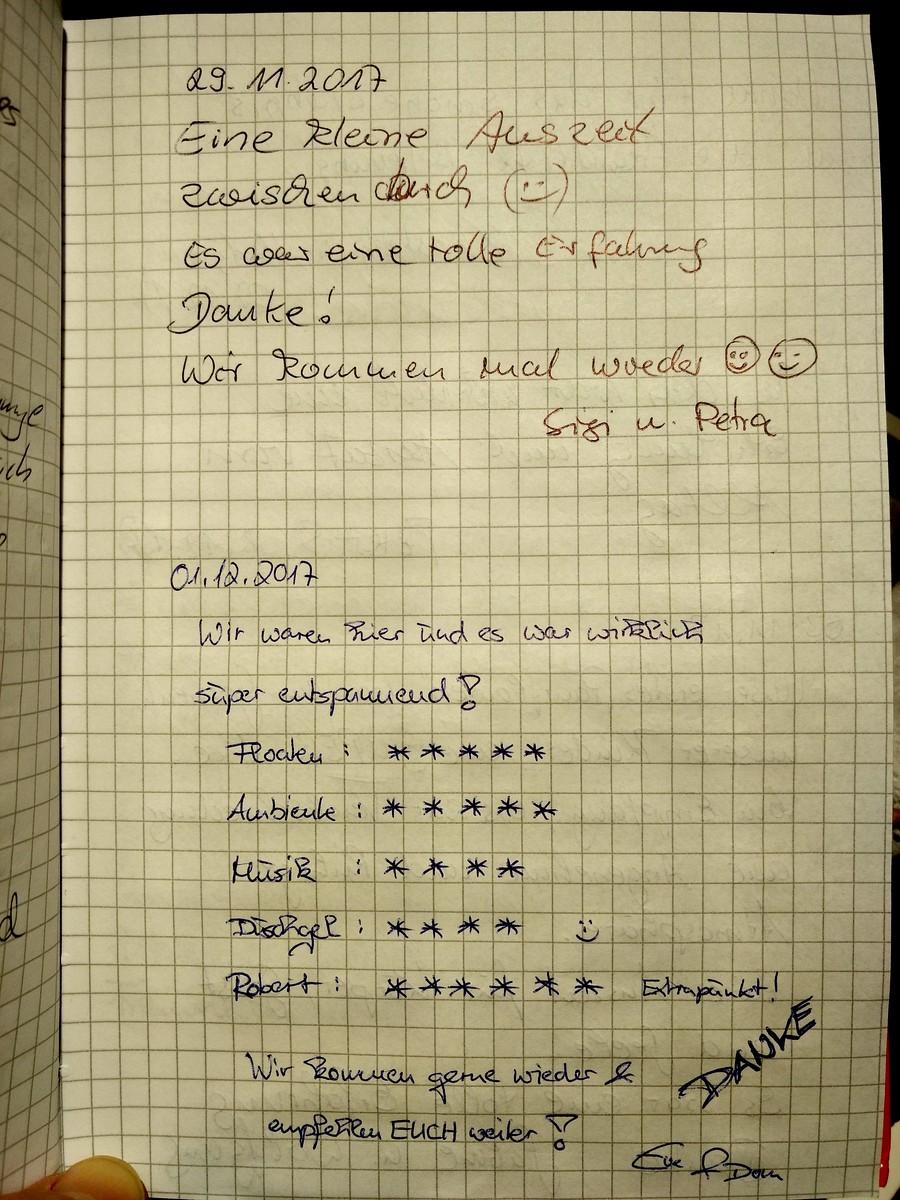 29.11.2017
Eine kleine Auszeit
zwischen durch (☺)
Es war eine tolle Erfahrung
Danke!
Wir kommen mal wieder ☺☺
Sigi u. Petra
01.12.2017
Wir waren hier und es war wirklich
super entspannend!
Floaten : * * * * *
Ambiente : * * * * *
Musik : * * * *
Duschgel : * * * * ☺
Robert : * * * * * * Extrapunkt!
DANKE
Wir kommen gerne wieder &
empfehlen EUCH weiter!